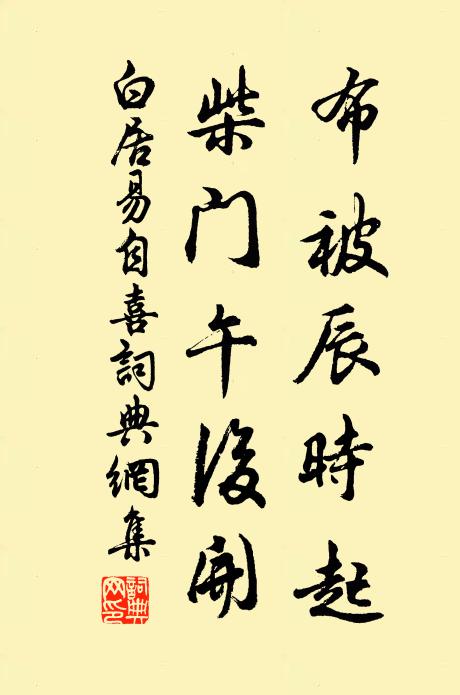 布被辰時起
柴门午後開
白居易自喜詞典網集
詞典网印